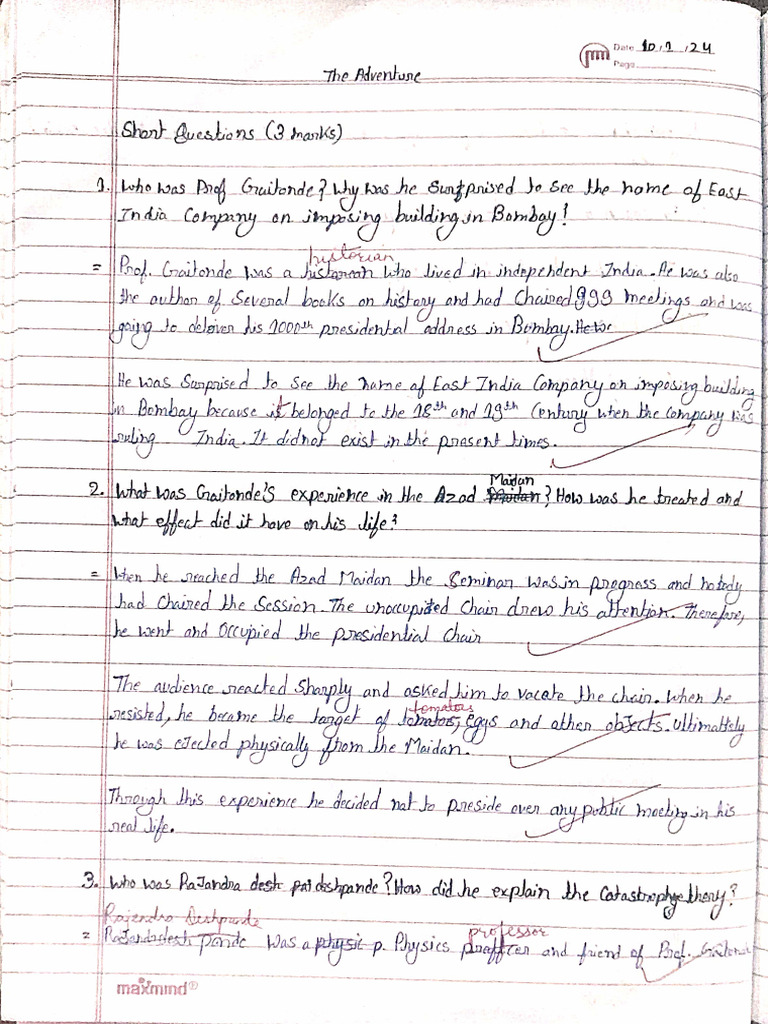 Date 10.1.24
Page
The Adventure
Short Questions (3 marks)
1. Who was Prof Graitonde? Why was he surprised to see the name of East
India Company on imposing building in Bombay!
historian
= Prof. Gaitonde was a historean who lived in independent India. He was also
the author of several books on history and had chaired 999 meetings and was
going to deliver his 1000th presidential address in Bombay. He wc
He was surprised to see the name of East India Company on imposing building
in Bombay because it belonged to the 18th and 19th Century when the company was
ruling India. It didnot exist in the present times.
Maidan
2. What was Gaitonde's experience in the Azad Maidan? How was he treated and
what effect did it have on his life?
= When he reached the Azad Maidan the Seminar was in progress and nobody
had Chaired the Session. The unoccupied Chair drew his attention. Therefore,
he went and Occupied the presidential Chair
The audience reacted Sharply and asked him to vacate the chair. When he
tomatoes
resisted, he became the target of tomators, eggs and other objects. Ultimattely
he was ejected physically from the Maidan.
Through this experience he decided not to preside over any public meeting in his
real life.
3. Who was RaJandra desh pai deshpande? How did he explain the Catastrophye theory?
Rajendra Deshpande
professor
= RaJandradesh pande was a physic p. Physics and friend of Prof. Gaitonde
maxmind®